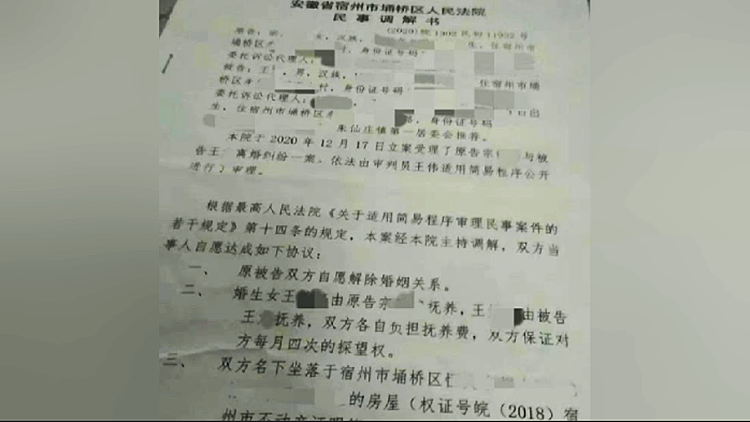 安徽省宿州市埇桥区人民法院
民事调解书
(2020)皖1302民初11932号
原告:宗 女,汉族, 生,住宿州市
埇桥区 ,身份证号码
委托诉讼代理人:
被告:王 ,男,汉族, 住宿州市埇
桥区 村,身份证号码
委托诉讼代理人: 日出
生,住宿州市埇桥区 ,身份证号码
朱仙庄镇第一居委会推荐。
本院于2020年12月17日立案受理了原告宗 与被
告王 离婚纠纷一案,依法由审判员王伟适用简易程序公开
进行了审理。
根据最高人民法院《关于适用简易程序审理民事案件的
若干规定》第十四条的规定,本案经本院主持调解,双方当
事人自愿达成如下协议:
一、 原被告双方自愿解除婚姻关系。
二、 婚生女王 由原告宗 抚养,王 由被告
王 抚养,双方各自负担抚养费,双方保证对
方每月四次的探望权。
三、 双方名下坐落于宿州市埇桥区
的房屋(权证号皖(2018)宿
州市不动产证明